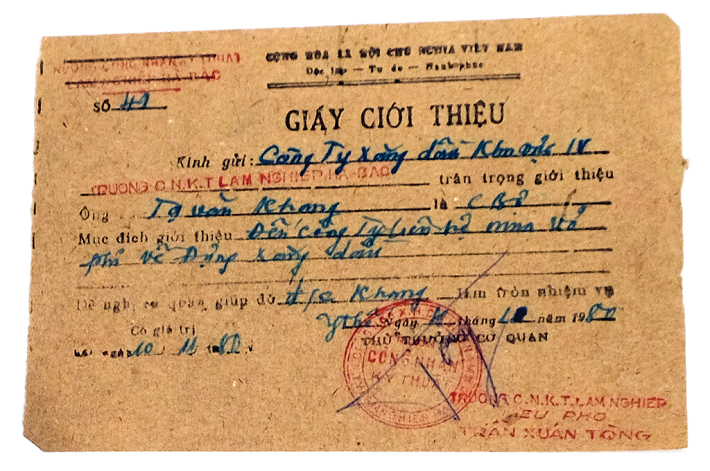 CỘNG HÒA XÃ HỘI CHỦ NGHĨA VIỆT NAM
Độc lập — Tự do — Hạnh phúc
TRƯỜNG CÔNG NHÂN KỸ THUẬT
LÂM NGHIỆP HÀ-BẮC
SỐ 41
GIẤY GIỚI THIỆU
Kính gửi: Công Ty xăng dầu Khu vực IV
TRUONG C.N.K.T LAM NGHIEP HA-BAC trân trọng giới thiệu
Ông Tạ văn Khang là CBộ
Mục đích giới thiệu Đến Công Ty liên hệ mua vỏ
phi về Đựng xăng dầu
Đề nghị cơ quan giúp đỡ đ/c Khang làm tròn nhiệm vụ
Ngày tháng 10 năm 1980
Có giá trị
hết ngày 10 11 1980
THỦ TRƯỞNG CƠ QUAN
CÔNG NHÂN
KỸ THUẬT
TRUONG C.N.K.T LAM NGHIEP
HIEU PHO
TRẦN XUÂN TÒNG